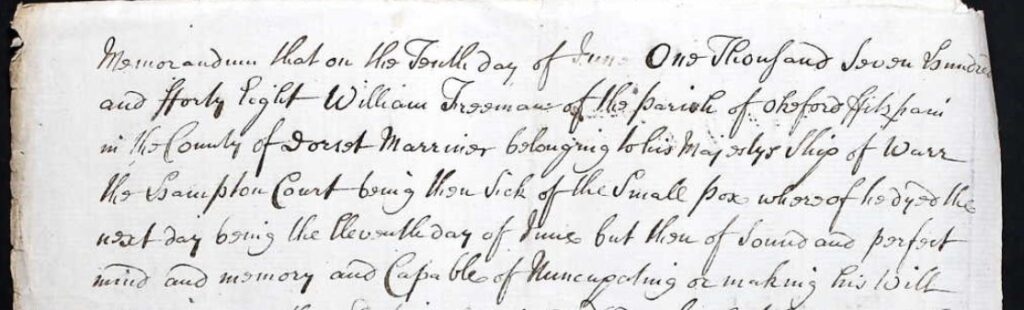 Memorandum that on the Tenth day of June One Thousand Seven Hundred
and fforty Eight William Freeman of the parish of Okeford ffitzpain
in the County of Dorset Marriner belonging to his Majestys Ship of Warr
the Hampton Court being then Sick of the Small pox whereof he dyed the
next day being the Eleventh day of June but then of Sound and perfect
mind and memory and Capable of Nuncupating or making his Will